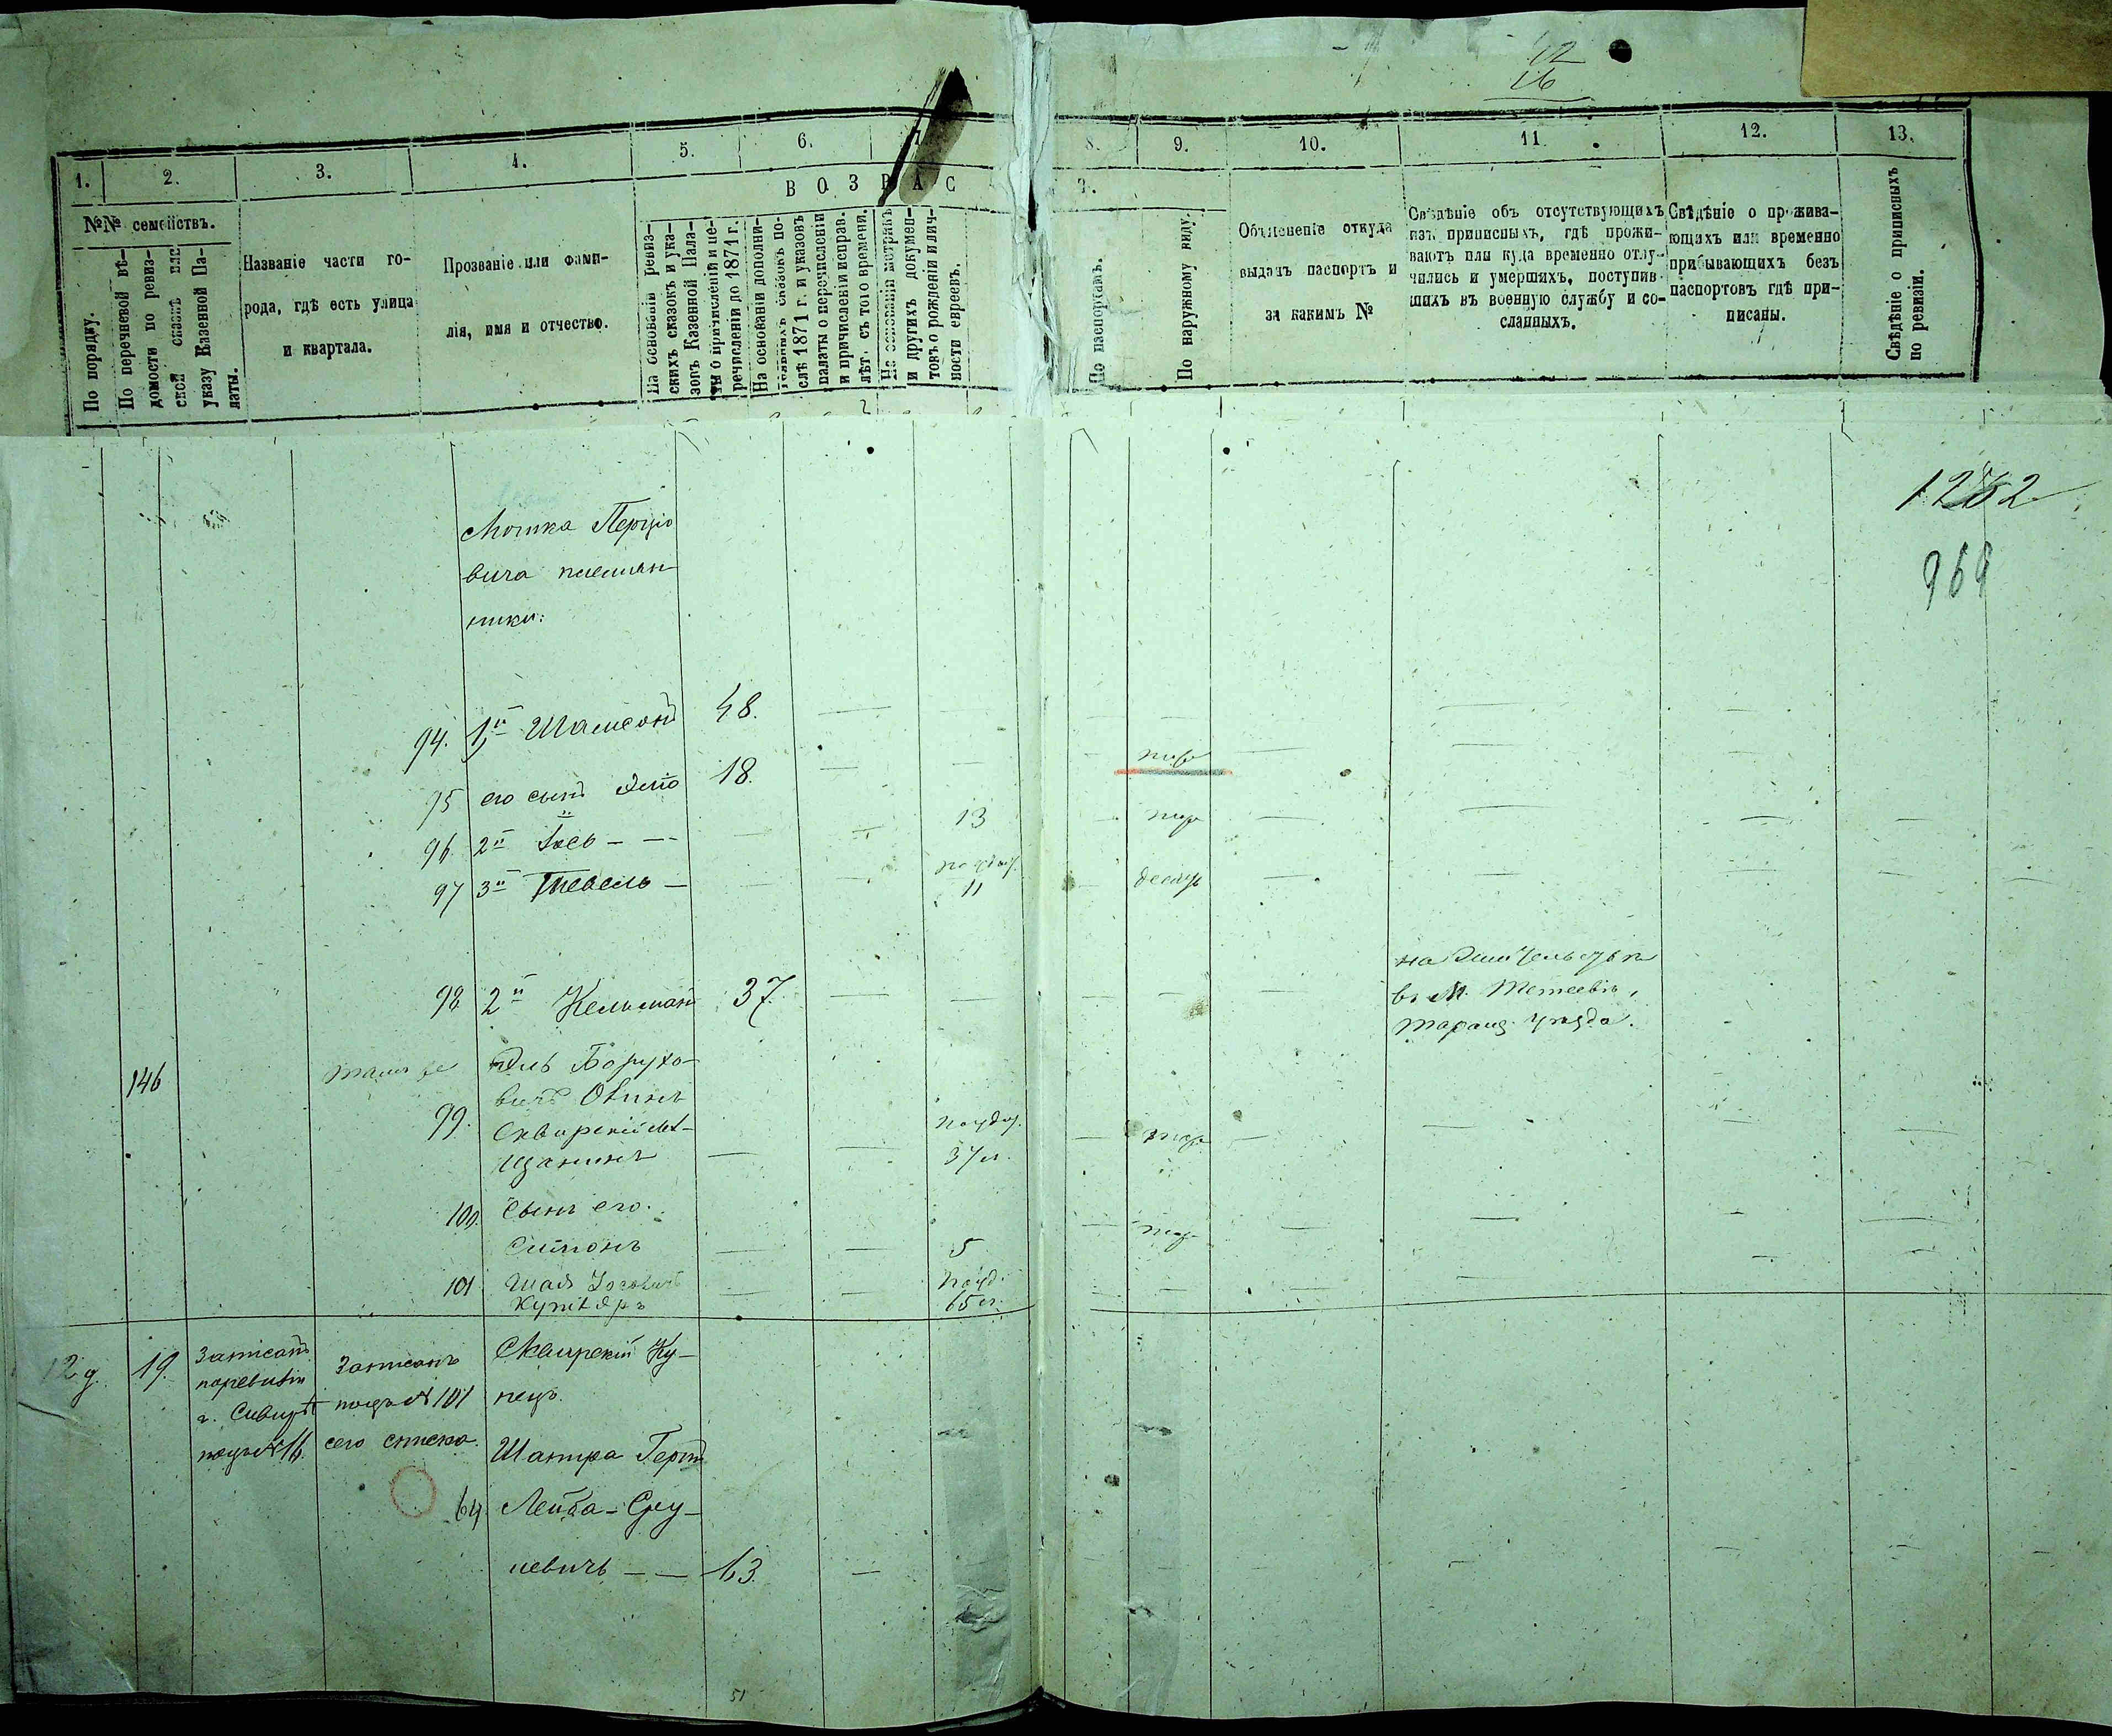 12
16
1.
2.
3.
4.
5.
6.
7
8.
9.
10.
11.
12.
13.
ВОЗРАС
Т.
№№ семействъ.
По порядку.
По перечневой вѣ-
домости по ревиз-
ской сказкѣ или
указу Казенной Па-
латы.
Названіе части го-
рода, гдѣ есть улица
и квартала.
Прозваніе или фами-
лія, имя и отчество.
На основаніи ревиз-
скихъ сказокъ и ука-
зовъ Казенной Пала-
ты о причисленіи и пе-
речисленіи до 1871 г.
На основаніи дополни-
тельныхъ сказокъ по-
слѣ 1871 г. и указовъ
палаты о перечисленіи
и причисленіи исправ.
лѣт. съ того времени.
На основаніи метрикъ
и другихъ докумен-
товъ о рожденіи и лич-
ности евреевъ.
По паспортамъ.
По наружному виду.
Объясненіе откуда
выданъ паспортъ и
за какимъ №
Свѣдѣніе объ отсутствующихъ
изъ приписныхъ, гдѣ прожи-
ваютъ или куда временно отлу-
чились и умершихъ, поступив-
шихъ въ военную службу и со-
сланныхъ.
Свѣдѣніе о прожива-
ющихъ или временно
прибывающихъ безъ
паспортовъ гдѣ при-
писаны.
Свѣдѣніе о приписныхъ
по ревизіи.
969
Мошка Герцко
вича племян-
ники:
94. 1й Шамсонъ 48.
95 его сынъ 18.
96 2й Іось - - 13
97 3й Тевель - 11
98 2й Кельманъ 37.
на жительствѣ
въ М. Тетеевѣ,
Таращ. уѣзда.
146 тамъ же Эль Борухо-
вичъ
99. Сквирскій Мѣ-
щанинъ 37 л.
100. Сынъ его.
Симонъ 5
101 65 л.
12 д. 19. Записанъ
по ревизіи
г. Сквирѣ
подъ № 16.
Записанъ
подъ № 101
сего списка.
Сквирскій Ку-
пецъ.
Шапира
64 Лейба-Сру-
левичъ - - 63.
51